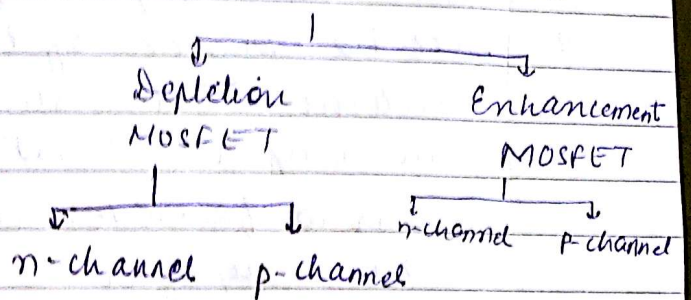 Depletion
MOSFET
Enhancement
MOSFET
n-channel
p-channel
n-channel
p-channel